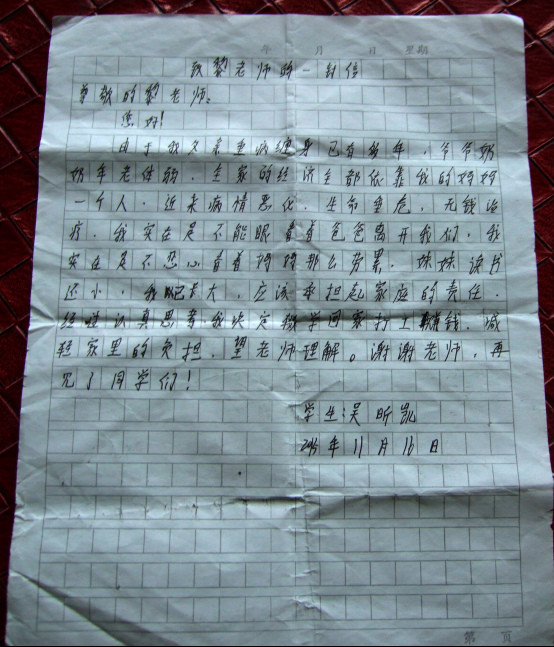 年 月 日 星期
致黎老师的一封信
尊敬的黎老师:
您好!
由于我父亲重病缠身已有多年,爷爷奶
奶年老体弱,全家的经济全部依靠我的妈妈
一个人,近来病情恶化,生命垂危,无钱治
疗,我实在是不能眼看着爸爸离开我们,我
实在是不忍心看着妈妈那么劳累,妹妹读书
还小,我已长大,应该承担起家庭的责任,
经过认真思考我决定辍学回家打工赚钱,减
轻家里的负担,望老师理解。谢谢老师,再
见了同学们!
学生:吴昕凯
年11月16日
第 页